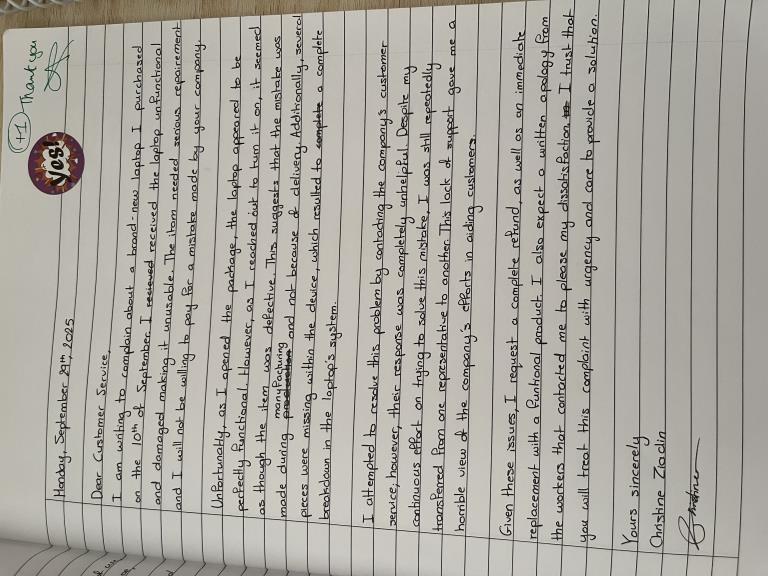 +1 Thank you
Yes!
Monday, September 29th, 2025
Dear Customer Service,
I am writing to complain about a brand-new laptop I purchased
on the 10th of September. I recieved received the laptop unfunctional
and damaged making it unusable. The item needed serious repairement
and I will not be willing to pay for a mistake made by your company.
Unfortunatly, as I opened the package, the laptop appeared to be
perfectly functional. However, as I reached out to turn it on, it seemed
as though the item was defective. This suggests that the mistake was
made during production manyfacturing and not because of delivery. Additionally, several
pieces were missing within the device, which resulted to complete a complete
breakdown in the laptop's system.
I attempted to resolve this problem by contacting the company's customer
service, however, their response was completely unhelpful. Despite my
continuous effort on trying to solve this mistake, I was still repeatedly
transferred from one representative to another. This lack of support gave me a
horrible view of the company's efforts in aiding customers.
Given these issues, I request a complete refund, as well as an immediate
replacement with a funtional product. I also expect a written apology from
the workers that contacted me to please my dissatisfaction. I trust that
you will treat this complaint with urgency and care to provide a solution.
Yours sincerely
Christine